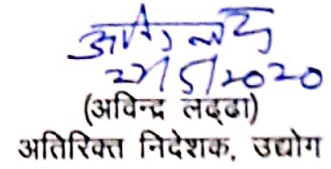 22/5/2020
(अविन्द्र लद्ढा)
अतिरिक्त निदेशक, उद्योग